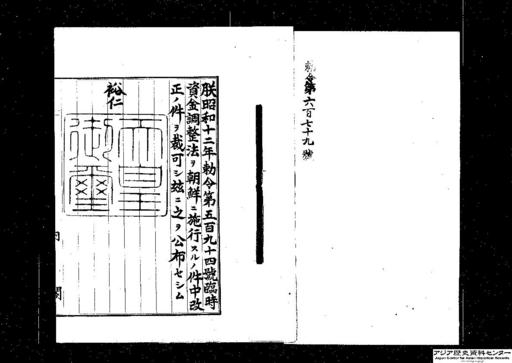 勅令第六百七十九號
朕昭和十二年勅令第五百九十四號臨時
資金調整法ヲ朝鮮ニ施行スルノ件中改
正ノ件ヲ裁可シ玆ニ之ヲ公布セシム
裕仁
天皇御璽
内閣
アジア歴史資料センター
Japan Center for Asian Historical Records